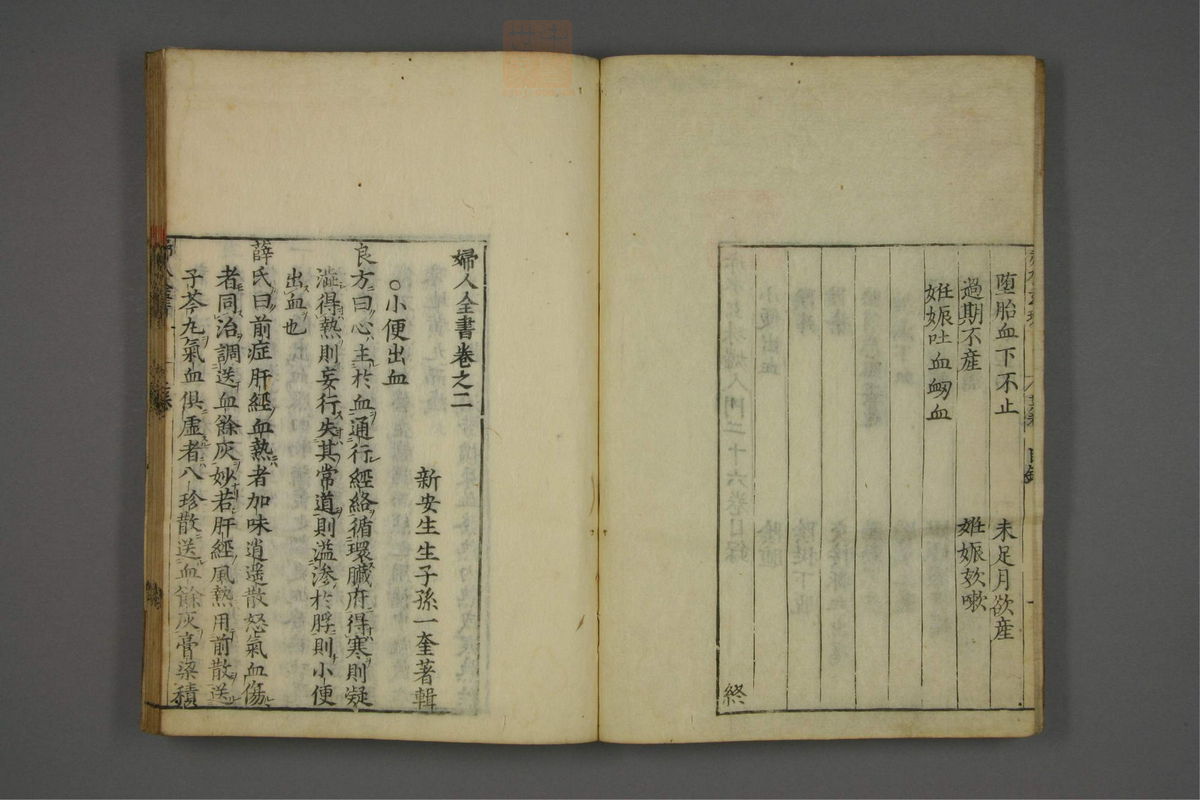 堕胎血下不止　未足月欲産
過期不産　姙娠欬嗽
姙娠吐血衂血
終
婦人全書卷之二
新安生生子孫一奎著輯
○小便出血
良方曰心主於血通行經絡循環臟府得寒則凝
澁得熱則妄行失其常道則溢滲於脬則小便
出血也
薛氏曰前症肝經血熱者加味逍遥散怒氣血傷
者同治調送血餘灰妙若肝經風熱用前散送
子芩丸氣血俱虚者八珍散送血餘灰膏梁積